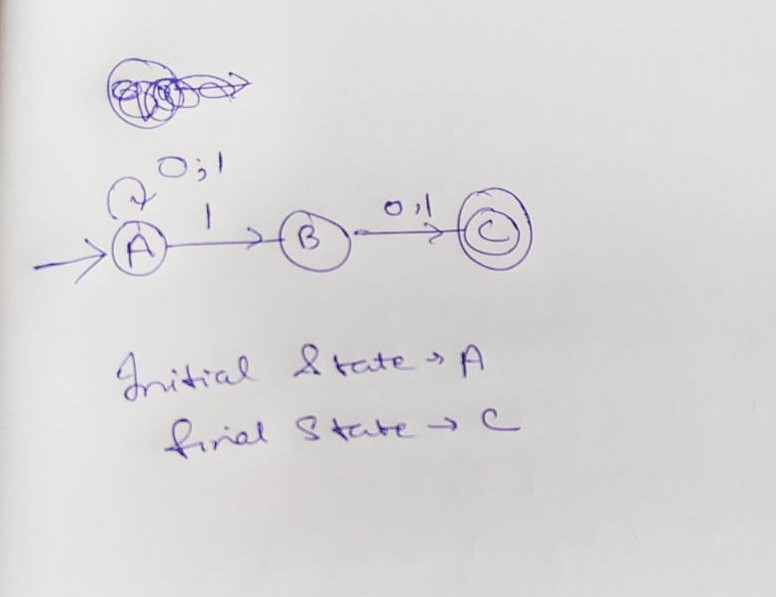 0;1
1
0,1
A
B
C
Initial State → A
final State → C